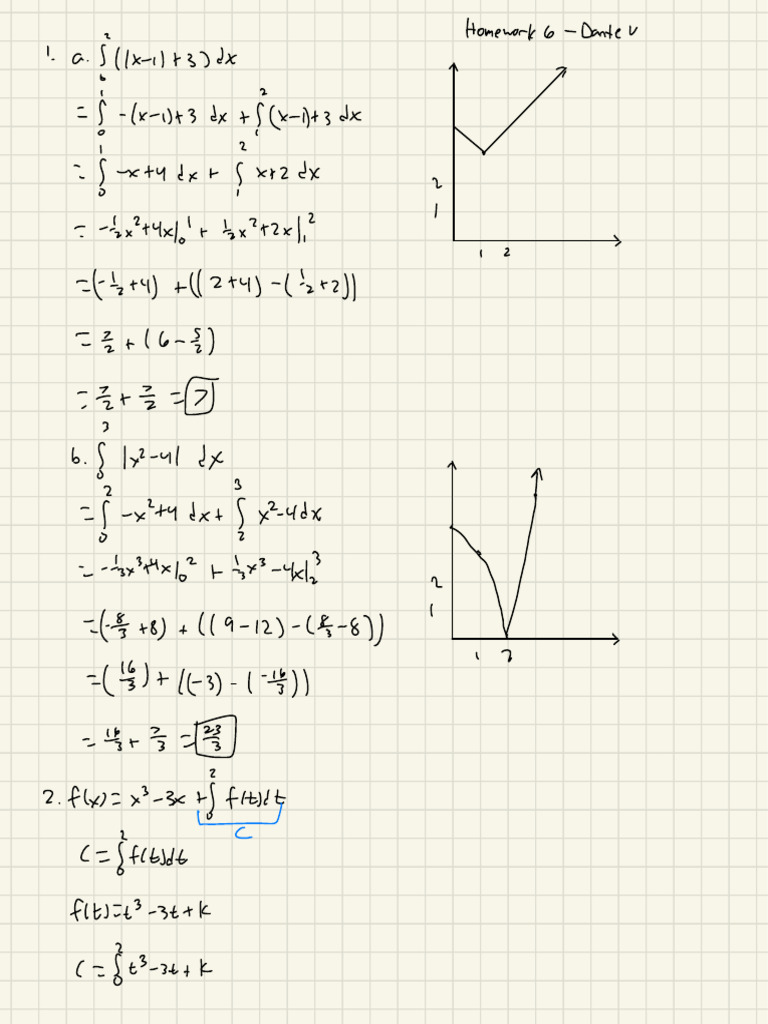 Homework 6 - Dante V
1. a. ∫₀² (|x-1|+3) dx
= ∫₀¹ -(x-1)+3 dx + ∫₁² (x-1)+3 dx
= ∫₀¹ -x+4 dx + ∫₁² x+2 dx
= -½x²+4x|₀¹ + ½x²+2x|₁²
= (-½+4) + ((2+4)-(½+2))
= 7/2 + (6-5/2)
= 7/2 + 7/2 = 7
2
1
1 2
b. ∫₀³ |x²-4| dx
= ∫₀² -x²+4 dx + ∫₂³ x²-4 dx
= -⅓x³+4x|₀² + ⅓x³-4x|₂³
= (-8/3+8) + ((9-12)-(8/3-8))
= (16/3) + ((-3)-(-16/3))
= 16/3 + 7/3 = 23/3
2
1
1 2
2. f(x) = x³-3x + ∫₀² f(t)dt
C
C = ∫₀² f(t)dt
f(t) = t³-3t+k
C = ∫₀² t³-3t+k